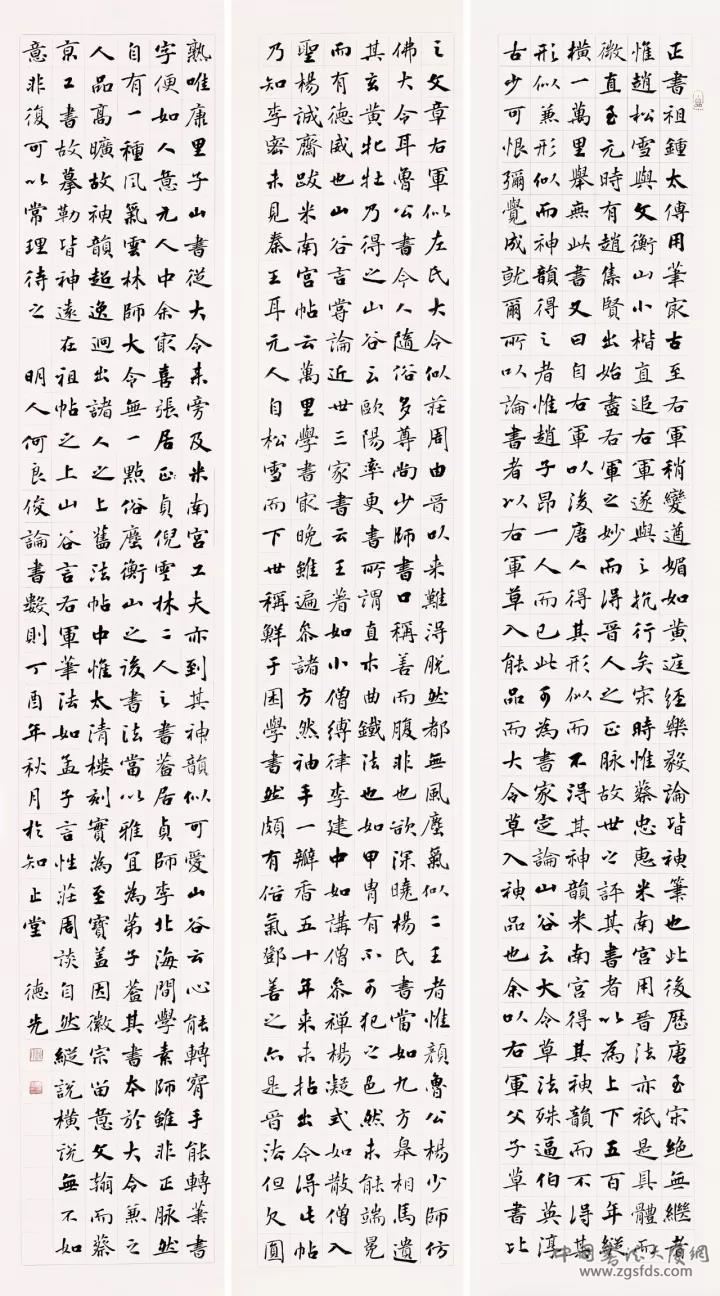 正書祖鍾太傅用筆最古至右軍稍變遒媚如黃庭經樂毅論皆神筆也此後歷唐至宋絕無繼者
惟趙松雪與文衡山小楷直追右軍遂與之抗行矣宋時惟蔡忠惠米南宮用晉法亦祇是具體而
微直至元時有趙集賢出始盡右軍之妙而得晉人之正脉故世之評其書者以為上下五百年縱
橫一萬里舉無此書又曰自右軍以後唐人得其形似而不得其神韻米南宮得其神韻而不得其
形似兼形似而神韻得之者惟趙子昂一人而已此可為書家定論山谷云大令草法殊逼伯英淳
古少可恨彌覺成就爾所以論書者以右軍草入能品而大令草入神品也余以右軍父子草書比
之文章右軍似左氏大令似莊周由晉以來難得脫然都無風塵氣似二王者惟顏魯公楊少師仿
佛大令耳魯公書今人隨俗多尊尚少師書口稱善而腹非也欲深曉楊氏書當如九方皋相馬遺
其玄黃牝牡乃得之山谷云歐陽率更書所謂直木曲鐵法也如甲冑有不可犯之色然未能端冕
而有德威也山谷言嘗論近世三家書云王著如小僧縛律李建中如講僧參禪楊凝式如散僧入
聖楊誠齋跋米南宮帖云萬里學書最晚雖遍參諸方然袖手一瓣香五十年來未拈出今得此帖
乃知李密未見秦王耳元人自松雪而下世稱鮮于困學書然頗有俗氣鄧善之亦是晉法但欠圓
熟唯康里子山書從大令來旁及米南宮工夫亦到其神韻似可愛山谷云心能轉手能轉筆書
字便如人意元人中余最喜張居正貞倪雲林二人之書蓋居貞師李北海間學素師雖非正脉然
自有一種風氣雲林師大令無一點俗塵衡山之後書法當以雅宜為第子蓋其書本於大令兼之
人品高曠故神韻超逸迥出諸人之上舊法帖中惟太清樓刻實為至寶蓋因徽宗留意文翰而蔡
京工書故摹勒皆神遠在祖帖之上山谷言右軍筆法如孟子言性莊周談自然縱說橫說無不如
意非復可以常理待之 明人何良俊論書數則丁酉年秋月於知止堂 德先
中国书法大广網
www.zgsfds.com